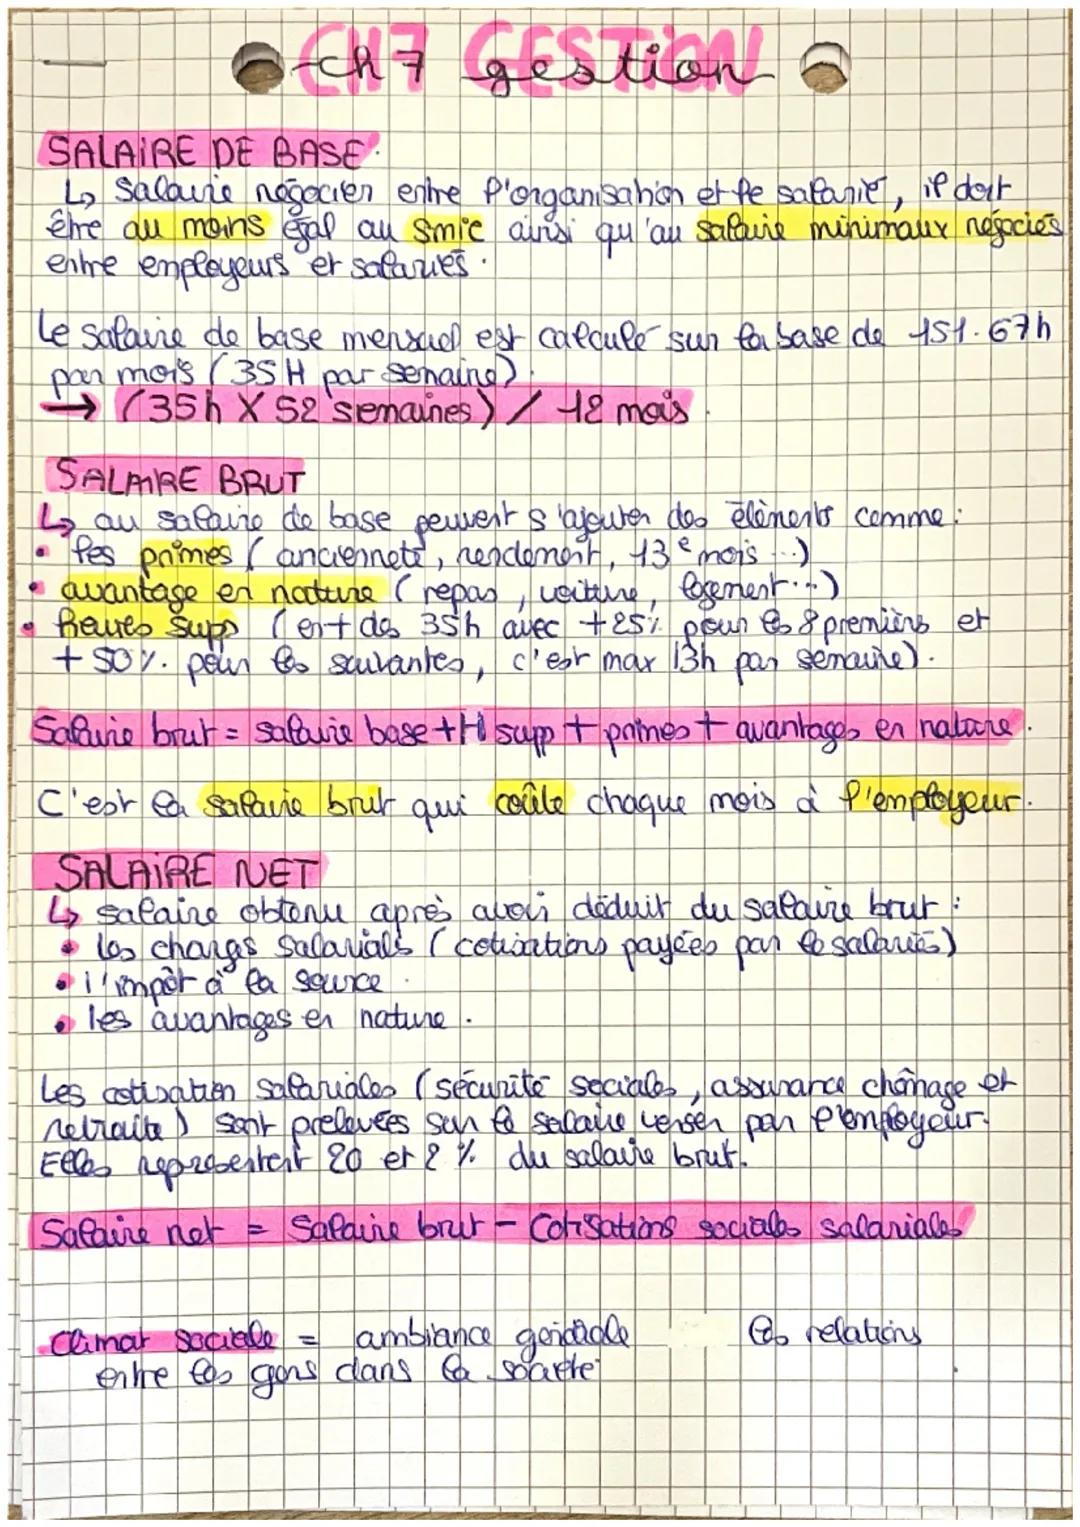 CH7 GESTION
ch7 gestion
SALAIRE DE BASE
↳ Salaire négocier entre l'organisation et le salarié, il doit
être au moins égal au Smic ainsi qu'au salaire minimaux négociés
entre employeurs et salariés.
Le salaire de base mensuel est calculé sur la base de 151.67h
par mois (35H par semaine).
→ (35h X 52 semaines) / 12 mois.
SALAIRE BRUT
↳ au salaire de base peuvent s'ajouter des éléments comme :
• les primes (ancienneté, rendement, 13e mois ...)
• avantage en nature (repas, voiture, logement...)
• heures supp (en + des 35h avec +25% pour les 8 premières et
+ 50% pour les suivantes, c'est max 13h par semaine).
Salaire brut = salaire base + H supp + primes + avantages en nature.
C'est la salaire brut qui coûte chaque mois à l'employeur.
SALAIRE NET
↳ salaire obtenu après avoir déduit du salaire brut :
• les charges salariales (cotisations payées par le salariés)
• l'impôt à la source.
• les avantages en nature.
Les cotisation salariales (sécurité sociales, assurance chômage et
retraite) sont prelevées sur le salaire verser par l'employeur.
Elles représentent 20 et 2 % du salaire brut.
Salaire net = Salaire brut - Cotisations sociales salariales
Climat sociale = ambiance générale les relations
entre les gens dans la société